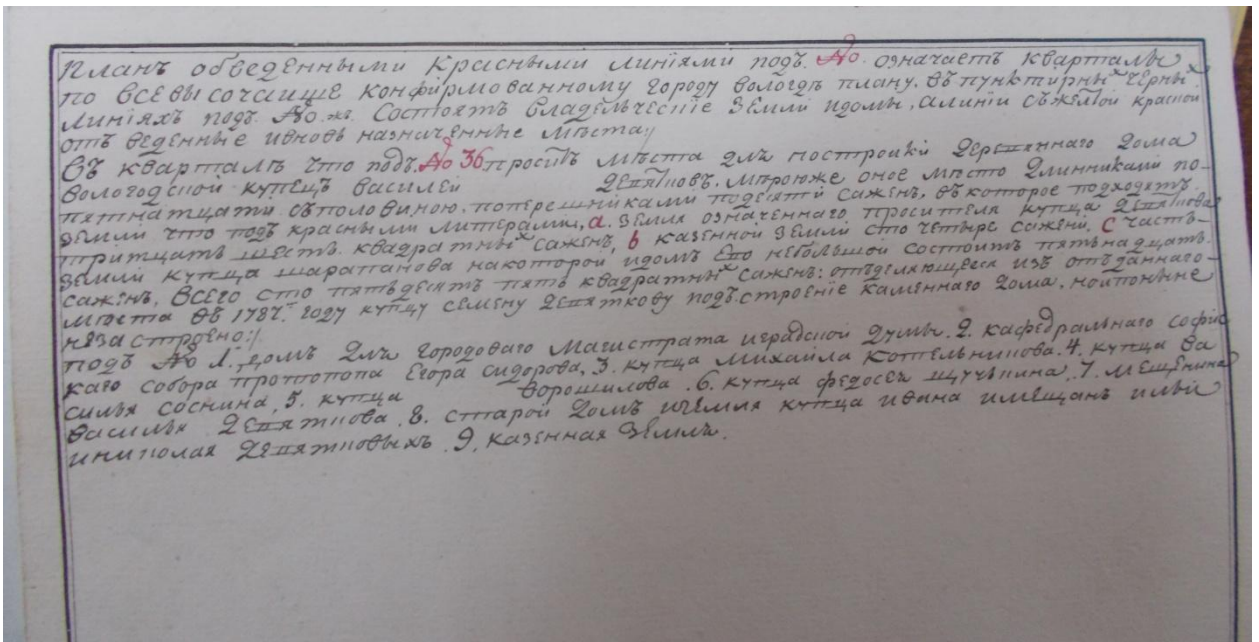 Планъ обведенными красными линіями подъ. № означаетъ кварталы
по всевысочаише конфирмованному городу вологдѣ плану. въ пунктирныхъ черныхъ
линіяхъ подъ № же. Состоятъ владѣльческіе земли идомы, алиніи съ желтой красной
отъ веденные ивновь назначенные мѣста:/
Въ кварталѣ что подъ. № 36 проситъ мѣста для постройки деревяннаго дома
вологодской купецъ василей Девятковъ. мѣроюже оное мѣсто длинниками по-
пятнатцати съполовиною, поперешниками подесяти сажень, въкоторое подходятъ
земли что подъ красными литерами, а. земля означеннаго просителя купца девяткова
тритцать шесть квадратныхъ сажень, b казенной земли сто четыре сажени, с часть-
земли купца шарапанова накоторой идомъ его небольшой состоитъ пятьнадцать-
сажень, всего сто пятьдесятъ пять квадратныхъ сажень: отъделяющееся изъ отъданнаго-
мѣста въ 1787. году купцу семену девяткову подъ строеніе каменнаго дома, нопоныне
незастроено:/
подъ № 1. домъ для городоваго магистрата иградской думы. 2. кафедральнаго софіс
каго собора протопопа Егора сидорова, 3. купца михайла котельникова. 4. купца ва
силья соснина, 5. купца ворошилова. 6. купца федосея щучькина, 7. мещенина
василья девяткова. 8. старой домъ иземля купца ивана имещанъ ильи
иниколая девятковыхъ. 9. казенная земля.